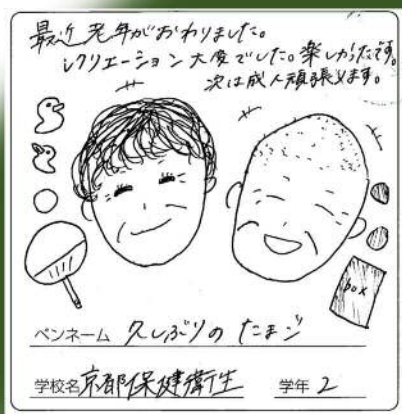 最近 老年がおわりました。
レクリエーション大変でした。楽しかったです。
次は成人頑張ります。
box
ペンネーム 久しぶりの たまご
学校名 京都保健衛生 学年 2